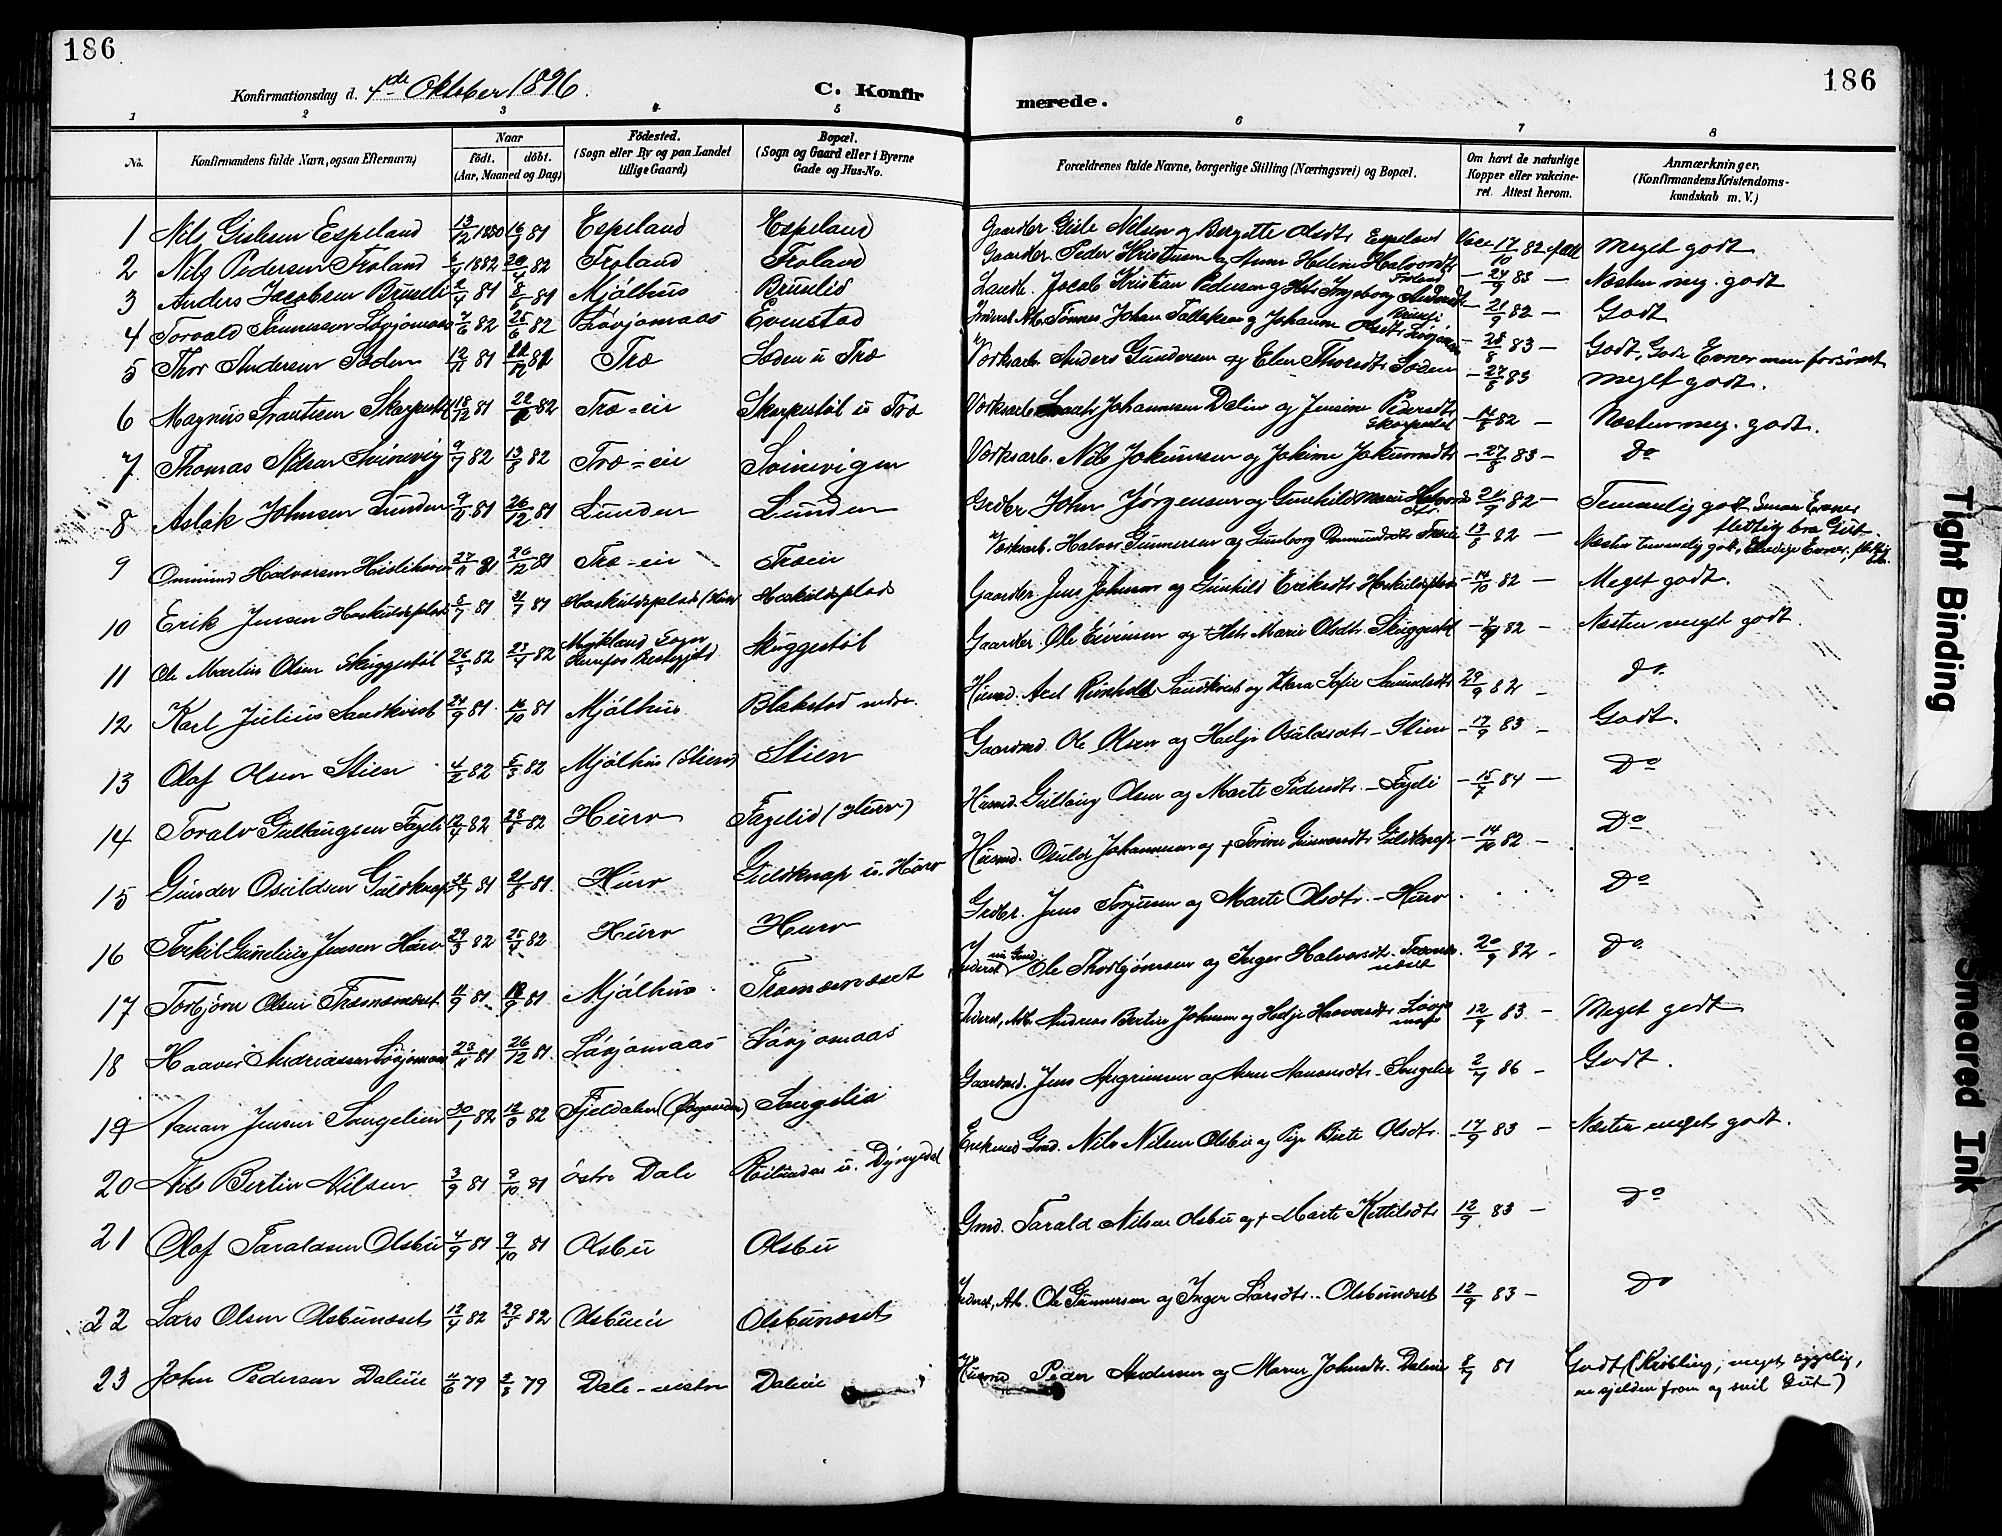 186
186
Konfirmationsdag d. 4de Oktober 1896.
C. Konfir
merede.
1 2 3 4 5 6 7 8
No.
Konfirmandens fulde Navn, ogsaa Efternavn)
Naar
født. døbt.
(Aar, Maaned og Dag)
Fødested.
(Sogn eller By og paa Landet
tillige Gaard)
Bopæl.
(Sogn og Gaard eller i Byerne
Gade og Hus-No.
Forældrenes fulde Navne, borgerlige Stilling (Næringsvei) og Bopæl.
Om havt de naturlige
Kopper eller vakcine-
ret. Attest herom.
Anmærkninger.
(Konfirmandens Kristendoms-
kundskab m. V.)
1 Nils Gislesen Espeland 13/12 1880 16/1 81 Espeland Espeland Gaardbr. Gisle Nilsen og Bergette Olsdtr Espeland Vacc 17/10 82 Meget godt
2 Nils Pedersen Froland 1882 82 Froland Froland Gaardbr. Peder Kristiansen og Anne Helene Halvorsdtr Froland - 24/9 83 - Næsten meg. godt
3 Anders Jacobsen Bruseli 2/4 81 8/6 81 Mjålhus Bruslid Jacob Kristian Pedersen og Ingeborg - 21/9 82 - Godt
4 Torvald Tønnessen Løvjomaas 7/6 82 25/6 82 Løvjomaas Evenstad Inderst, Arb. Tønnes Johan Tellefsen og Johanne Olsdtr - 28/8 83 - Godt, Gode Evner men forsømt
5 Thor Andersen Soden 12/11 81 82 Træ Soden u Træ Værksarb Anders Gundersen og Elen Thorsdtr Soden - 27/8 83 meget godt.
6 Magnus Skarpestøl 18/12 81 82 Træ-eie Skarpestøl u Træ Værksarb. Johannesen Dalen og Jensine Pedersdtr Skarpestøl - 14/8 82 - Næsten meg. godt.
7 Thomas Nilsen Svinevig 9/7 82 13/8 82 Træ-eie Svinevigen Værksarb. Nils Jokumsen og Jokine Jokumsdtr - 27/8 83 - Do
8 Aslak Johnsen Lunden 9/11 81 26/12 81 Lunden Lunden Grdbr John Jørgensen og Gunhild Marie 21/9 82 - Temmelig godt, smaa Evner
flittig bra Gut
9 Ommund Halvorsen 27/11 81 26/12 81 Træ-eie Træeie Værksarb. Halvor Gunnersen og Gunborg Ommundsdtr Træeie 13/8 82 - Næsten temmelig godt,
10 Erik Jensen Heskildsplads 5/7 81 31/7 81 Heskildsplads (Hurv Heskildsplads Gaardbr. Jens Johnsen og Gunhild Eriksdtr Heskildsplads - 14/10 82 - Meget godt.
11 Ole Martin Olsen Skiggestøl 26/3 82 23/4 82 Mykland Sogn Skiggestøl Gaardbr. Ole Eivinsen og + Marie Olsdtr Skiggestøl 82 - Næsten meget godt.
12 Karl Julius Sandkvist 24/9 81 16/10 81 Mjålhus Blakstad nedre. Husmd. Axel Sandkvist og Klara Sofie 29/9 82 - do.
13 Olaf Olsen Stien 4/2 82 5/3 82 Mjålhus (Stien) Stien Gaardmd. Ole Olsen og Helje Osuldsdtr - Stien - 17/9 83 - Godt.
14 Toralv Gulbingsen Fageli 12/4 82 82 Hurv Fagelid (Hurv) Husmd. Olsen og Marte Pedersdtr - Fageli - 15/7 84 - Do
15 Gunder Osuldsen Guldknap 81 21/8 81 Hurv Guldknap u. Hurv Husmd. Osuld Johannesen og + Guldknap - 14/10 82 - Do
16 Terkil Gunelius Jensen Hurv 29/3 82 25/4 82 Hurv Hurv Grdbr. Jens Torjusen og Marte Olsdtr - Hurv Do
17 Torbjørn Olsen Tramenæset 11/9 81 18/9 81 Mjålhus. Tramenæset Inderst Ole Thorbjørnsen og Inger Halvorsdtr. 20/9 82 - Do
18 Haaver Andreassen Løvjomaas 23/11 81 26/12 81. Løvjomaas Løvjomaas Inderst, Arb. Andreas Bertin Johnsen og Helje Haaversdtr Løvjomaas 12/9 83 - Meget godt
19 Aanon Jensen Songelien 30/1 82 12/3 82 Fjeldalen Songelia Gaardmd. Jens Asgrimsen og Anne Aanonsdtr - Songelia 2/7 86 - Godt.
20 Nils Bertin Nilsen 3/9 81 9/10 81 østre Dale Nils Nilsen Olsbu og Pige Olsdtr. 17/9 83 - Næsten meget godt.
21 Olaf Taraldsen Olsbu 4/9 81 9/10 81 Olsbu Olsbu Gmd. Tarald Nilsen Olsbu og + Marte Kittilsdtr 12/9 83 - Do
22 Lars Olsen Olsbunæset 12/4 82 29/5 82 Olsbueie Olsbunæset Inderst, Arb. Ole Gunnersen og Inger Larsdtr. - Olsbunæset 12/9 83 - Do
23 John Pedersen Daleeie 4/6 79 79 Dale-vestre Daleeie Husmd Peder Andersen og Maren Johnsdtr. Daleeie 8/7 81 Godt (Krøbling, meget sygelig,
en sjelden from og snil Gut)
Tight Binding
Smeared Ink